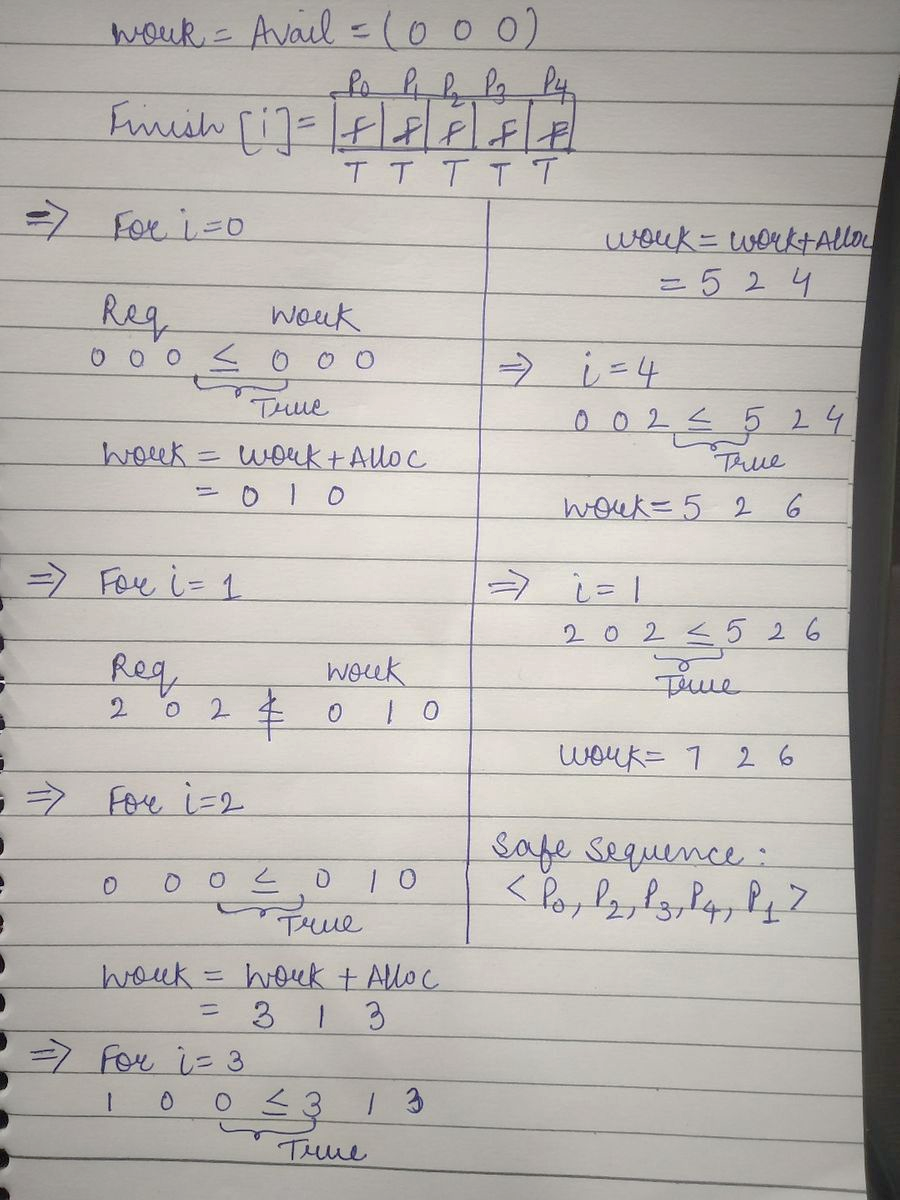 Work = Avail = (0 0 0)
P0 P1 P2 P3 P4
Finish [i] = f f f f f
T T T T T
⇒ For i=0
Req Work
0 0 0 ≤ 0 0 0
True
Work = Work + Alloc
= 0 1 0
⇒ For i= 1
Req Work
2 0 2 ≰ 0 1 0
⇒ For i=2
0 0 0 ≤ 0 1 0
True
Work = Work + Alloc
= 3 1 3
⇒ For i= 3
1 0 0 ≤ 3 1 3
True
Work = Work+Alloc
= 5 2 4
⇒ i = 4
0 0 2 ≤ 5 2 4
True
Work= 5 2 6
⇒ i = 1
2 0 2 ≤ 5 2 6
True
Work= 7 2 6
Safe Sequence :
< P0, P2, P3, P4, P1 >